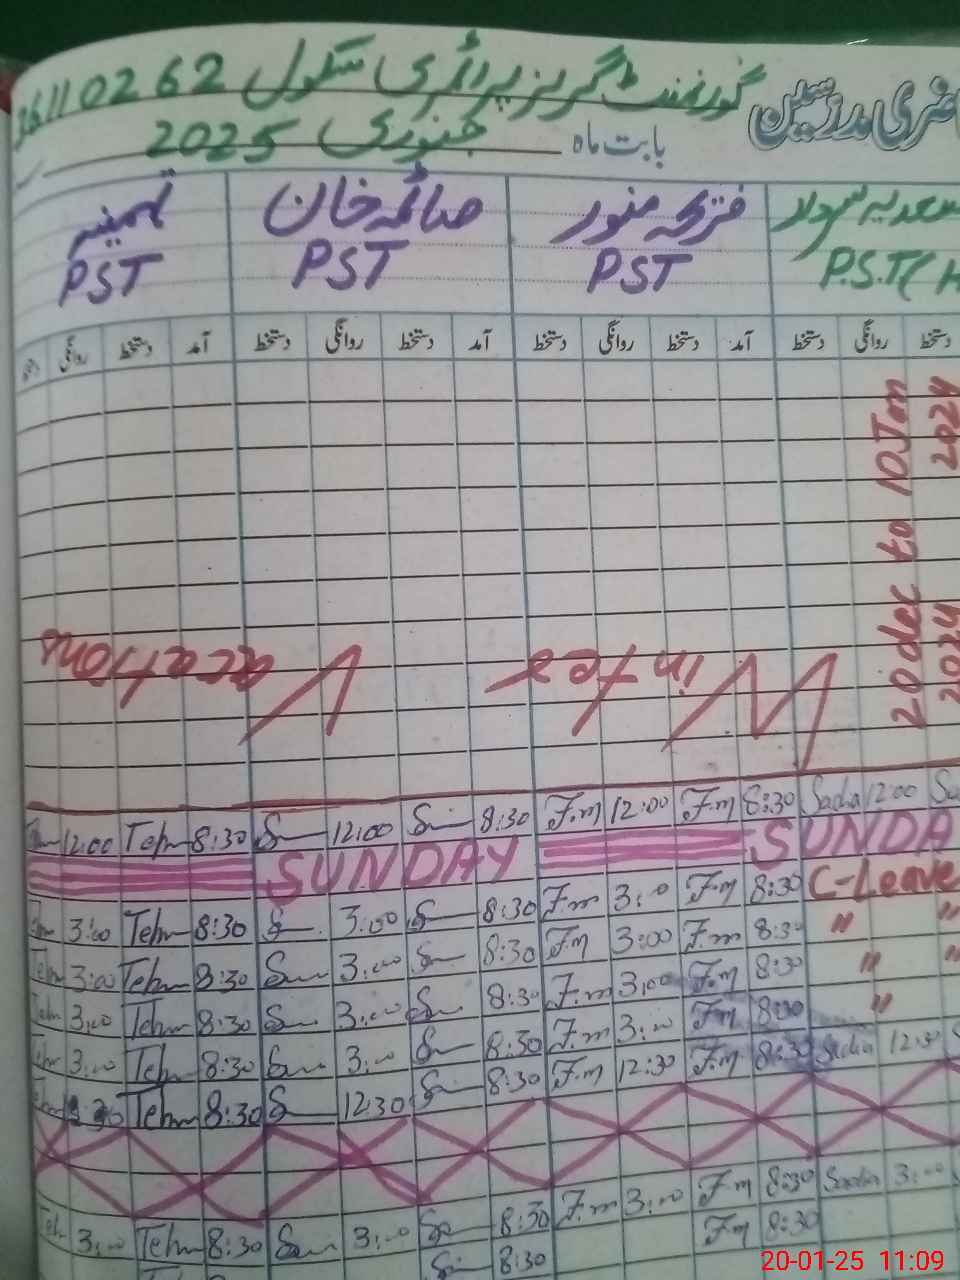 گورنمنٹ گرلز پرائمری سکول 36110262
حاضری مدرسین
بابت ماہ جنوری 2025
صائمہ خان
تہمینہ
P.S.T(H
PST
PST
PST
دستخط روانگی دستخط آمد روانگی دستخط دستخط آمد روانگی دستخط دستخط آمد روانگی دستخط
20 dec to 10 Jan
2024 2024
Winter
Vecations
12:00 Tehm 8:30 S 12:00 S 8:30 F.m 12:00 F.m 8:30 Sadia 12:00
SUNDAY SUNDA
3:00 Tehm 8:30 S 3:00 S 8:30 F.m 3:00 F.m 8:30 C-Leave
3:00 Tehm 8:30 S 3:00 S 8:30 F.m 3:00 F.m 8:30 " "
3:00 Tehm 8:30 S 3:00 S 8:30 F.m 3:00 F.m 8:30 " "
3:00 Tehm 8:30 S 3:00 S 8:30 F.m 3:00 F.m 8:30 "
Tehm 8:30 S 12:30 S 8:30 F.m 12:30 F.m 8:30 Sadia 12:30
Teh 3:00 Tehm 8:30 S 3:00 S 8:30 F.m 3:00 F.m 8:30 Sadia 3:00
8:30 F.m 8:30
20-01-25 11:09